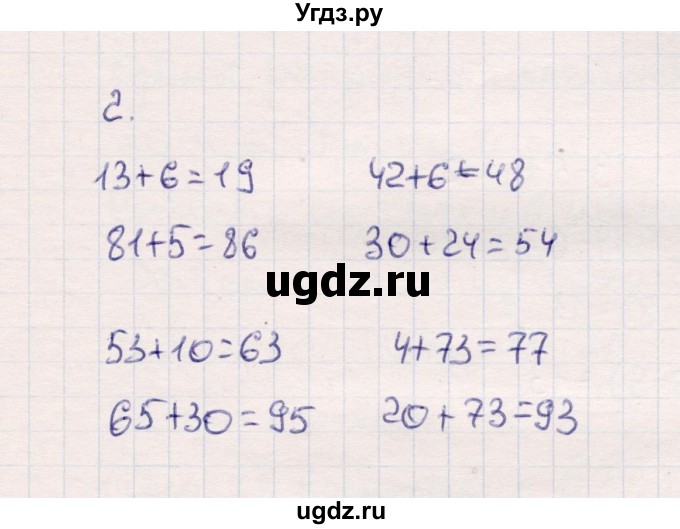 Угдз.ру
2.
13+6=19 42+6=48
81+5=86 30+24=54
ugdz.ru
53+10=63 4+73=77
65+30=95 20+73=93
ugdz.ru